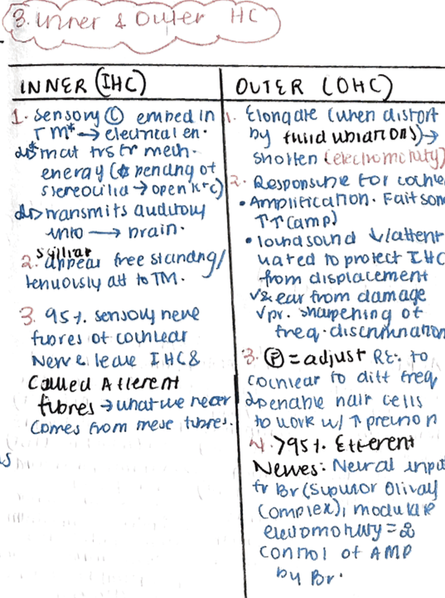 3. Inner & Outer HC
INNER (IHC)
1. Sensory © embed in
TM* → electrical en.
* mat trs fr mech.
energy ( pending of
stereocilia → open)
transmits auditory
info → brain.
2. appear free standing/
tenuously att to TM.
3. 95% sensory nerve
fibres of cochlear
Nerve leave IHC &
Called Afferent
fibres → what we hear
comes from these fibres.
OUTER (OHC)
1. Elongate (when distort
by fluid vibrations) →
shorten (electromotility)
2. Responsible for cochlear
• Amplification. Faitson
↑↑ (amp)
• loud sound ↓/atten
uated to protect IHC
from displacement
& ear from damage
sharpening of
freq. discrimination
3. Ⓕ = adjust RE. to
cochlear to diff freq
& enable hair cells
to work w/ ↑
4. >95% Efferent
Nerves: Neural input
fr Br (Superior Olivary
Complex), modulate
electromotility =
control of AMP
by Br.